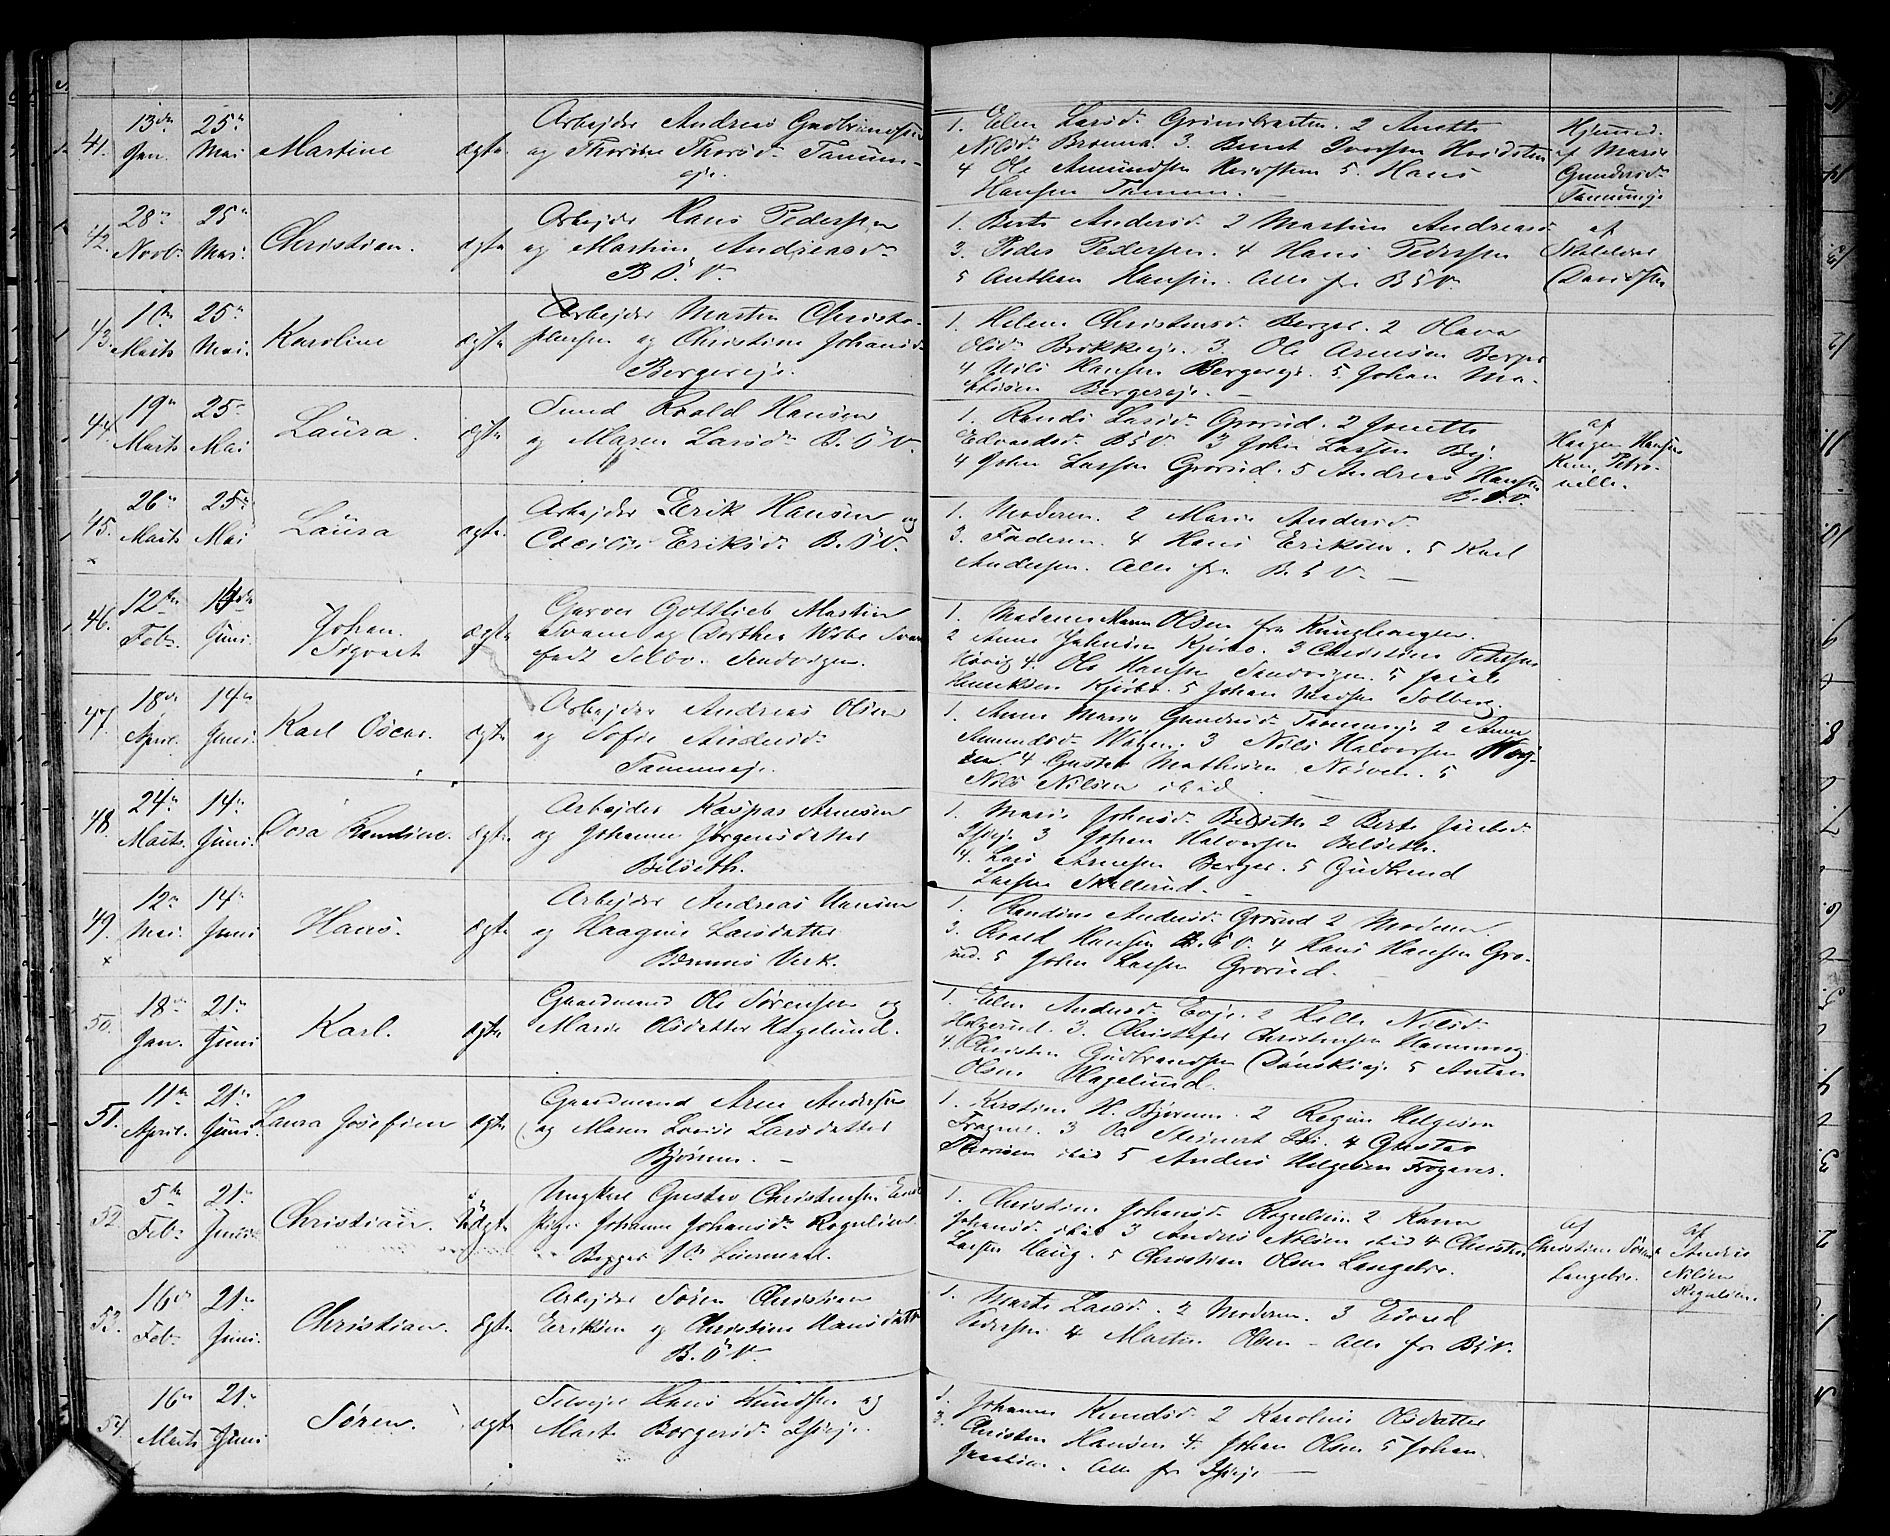 41. 13de Jan. 25de Mai Martine ægte
Arbejder Andreas Gudbrandsen
og Thorine Thorsd. Tanum-
eje.
1. Elen Larsd. Grinibraaten. 2 Anette
Nilsd. Brønna. 3. Bernt Iversen
4 Ole Amundsen 5. Hans
Hansen Tanum.
Hjemmed.
af Marie
Gundersd.
Tanumeje
42. 28de Novb. 25de Mai. Christian. ægte
Arbejder Hans Pedersen
og Martine Andreasd.
B. J. V.
1. Berte Andersd. 2 Martine Andreasd.
3. Peder Pedersen. 4 Hans Pedersen
5 Anthon Hansen. Alle fra B J V.
af
Davidsen
43. 1ste Marts 25de Mai. Karoline ægte
Arbejder Martin Christo-
phersen og Christine Johansd.
Bergereje.
1. Helene Christensd. Berger. 2 Olava
Olsd. Brekkeeje. 3. Ole Arnesen Berger
4 Nils Hansen Bergereje. 5. Johan Ma-
thisen Bergereje. —
44. 19de Marts 25de Mai Laura. ægte
Smed Roald Hansen
og Maren Larsd. B. J. V.
1. Randi Larsd. Grorud. 2 Jonette
Edvardsd. B J V. 3 John Larsen By.
4 John Larsen Grorud. 5 Andreas Hansen
B. J. V.
af
Haagen Hansen
Petro-
nelle.
45. 26de Marts 25de Mai Laura ægte.
Arbejder Erik Hansen og
Cecilie Eriksd. B. J. V.
1. Moderen. 2 Marie Andersd.
3. Faderen. 4 Hans Eriksen. 5 Karl
Andersen. Alle fra B. J V. —
46. 12te Feb. 14de Juni. Johan Sigvart ægte
Garver Gottlieb Martin
Svane og Dorthea Wibe Svane
født Selbo. Sandvigen.
1. Madame Olsen fra
2 Anne Johnsen Kjørbo. 3 Christine Petersen
Høvig 4. Ole Hansen Sandvigen. 5
Henriksen Kjørbo. 5 Johan Madsen Solberg.
47. 18de April. 14de Juni. Karl Oscar. ægte
Arbejder Andreas Olsen
og Sofie Andersd.
Tanumeje.
1. Anne Marie Gundersd. Tanumeje 2 Anne
Amundsd. Wøyen. 3 Nils Halvorsen Wøy-
en 4 Gustav Mathisen 5
Nils Nilsen ibid.
48. 24de Marts. 14de Juni. Dora Randine. ægte.
Arbejder Kaspar Arnesen
og Johanne Jørgensdatter
Belseth.
1. Marie Johnsd. Belseth 2 Berte
3 Johan Halvorsen Belseth.
4. Lars Arnesen Berger. 5 Gudbrand
Larsen Skollerud. —
49. 12te Mai. 14de Juni Hans. ægte
Arbejder Andreas Hansen
og Haagine Larsdatter
Bærums Verk.
1. Randine Andersd. Grorud 2 Moderen.
3. Roald Hansen B. J V. 4 Hans Hansen Gro-
rud. 5 John Larsen Grorud.
50. 18de Jan. 21de Juni Karl. ægte
Gaardmand Ole Sørensen og
Marie Olsdatter Hagelund.
1. Elen Andersd. Evje. 2 Kelle Nilsd.
Helgerud. 3. Christofer Christensen
4. Christen Gudbrandsen Dønskieje 5 Anton
Olsen Hagelund.
51. 11te April. 21de Juni. Laura Josefine ægte
Gaardmand Arne Andersen
og Maren Lovise Larsdatter
Bjørum. —
1. Kirstine H. Bjørum. 2 Regine Helgesen
Frogner. 3 Steinert 4 Gustav
ibid 5 Anders Helgesen Frogner.
52. 5te Feb. 21de Juni Christian. Uægte
Ungkarl Gustav Christensen
Pige Johanne Johansd. Rognlien.
Begges 1ste Leiermaal.
1. Christine Johansd. Rognlien. 2 Karen
Johansd. ibid 3 Anders Nilsen ibid 4 Christen
Larsen Haug. 5 Christian Olsen Langebro.
af
Christine
Langebro.
af
Anders
Nilsen
Rognlien.
53. 16de Feb. 21de Juni. Christian. ægte.
Arbejder Søren Christian
Eriksen og Christine Hansdatter
B. J. V.
1. Marte Larsd. 2 Moderen. 3 Edvard
Pedersen 4 Martin Olsen — Alle fra B J V.
54. 16de Marts 21de Juni Søren. ægte
Selvejer Hans Knudsen og
Marte Borgersd.
1. Johanne Knudsd. 2 Karoline Olsdatter
3. Christen Hansen 4. Johan Olsen 5 Johan
Alle fra —